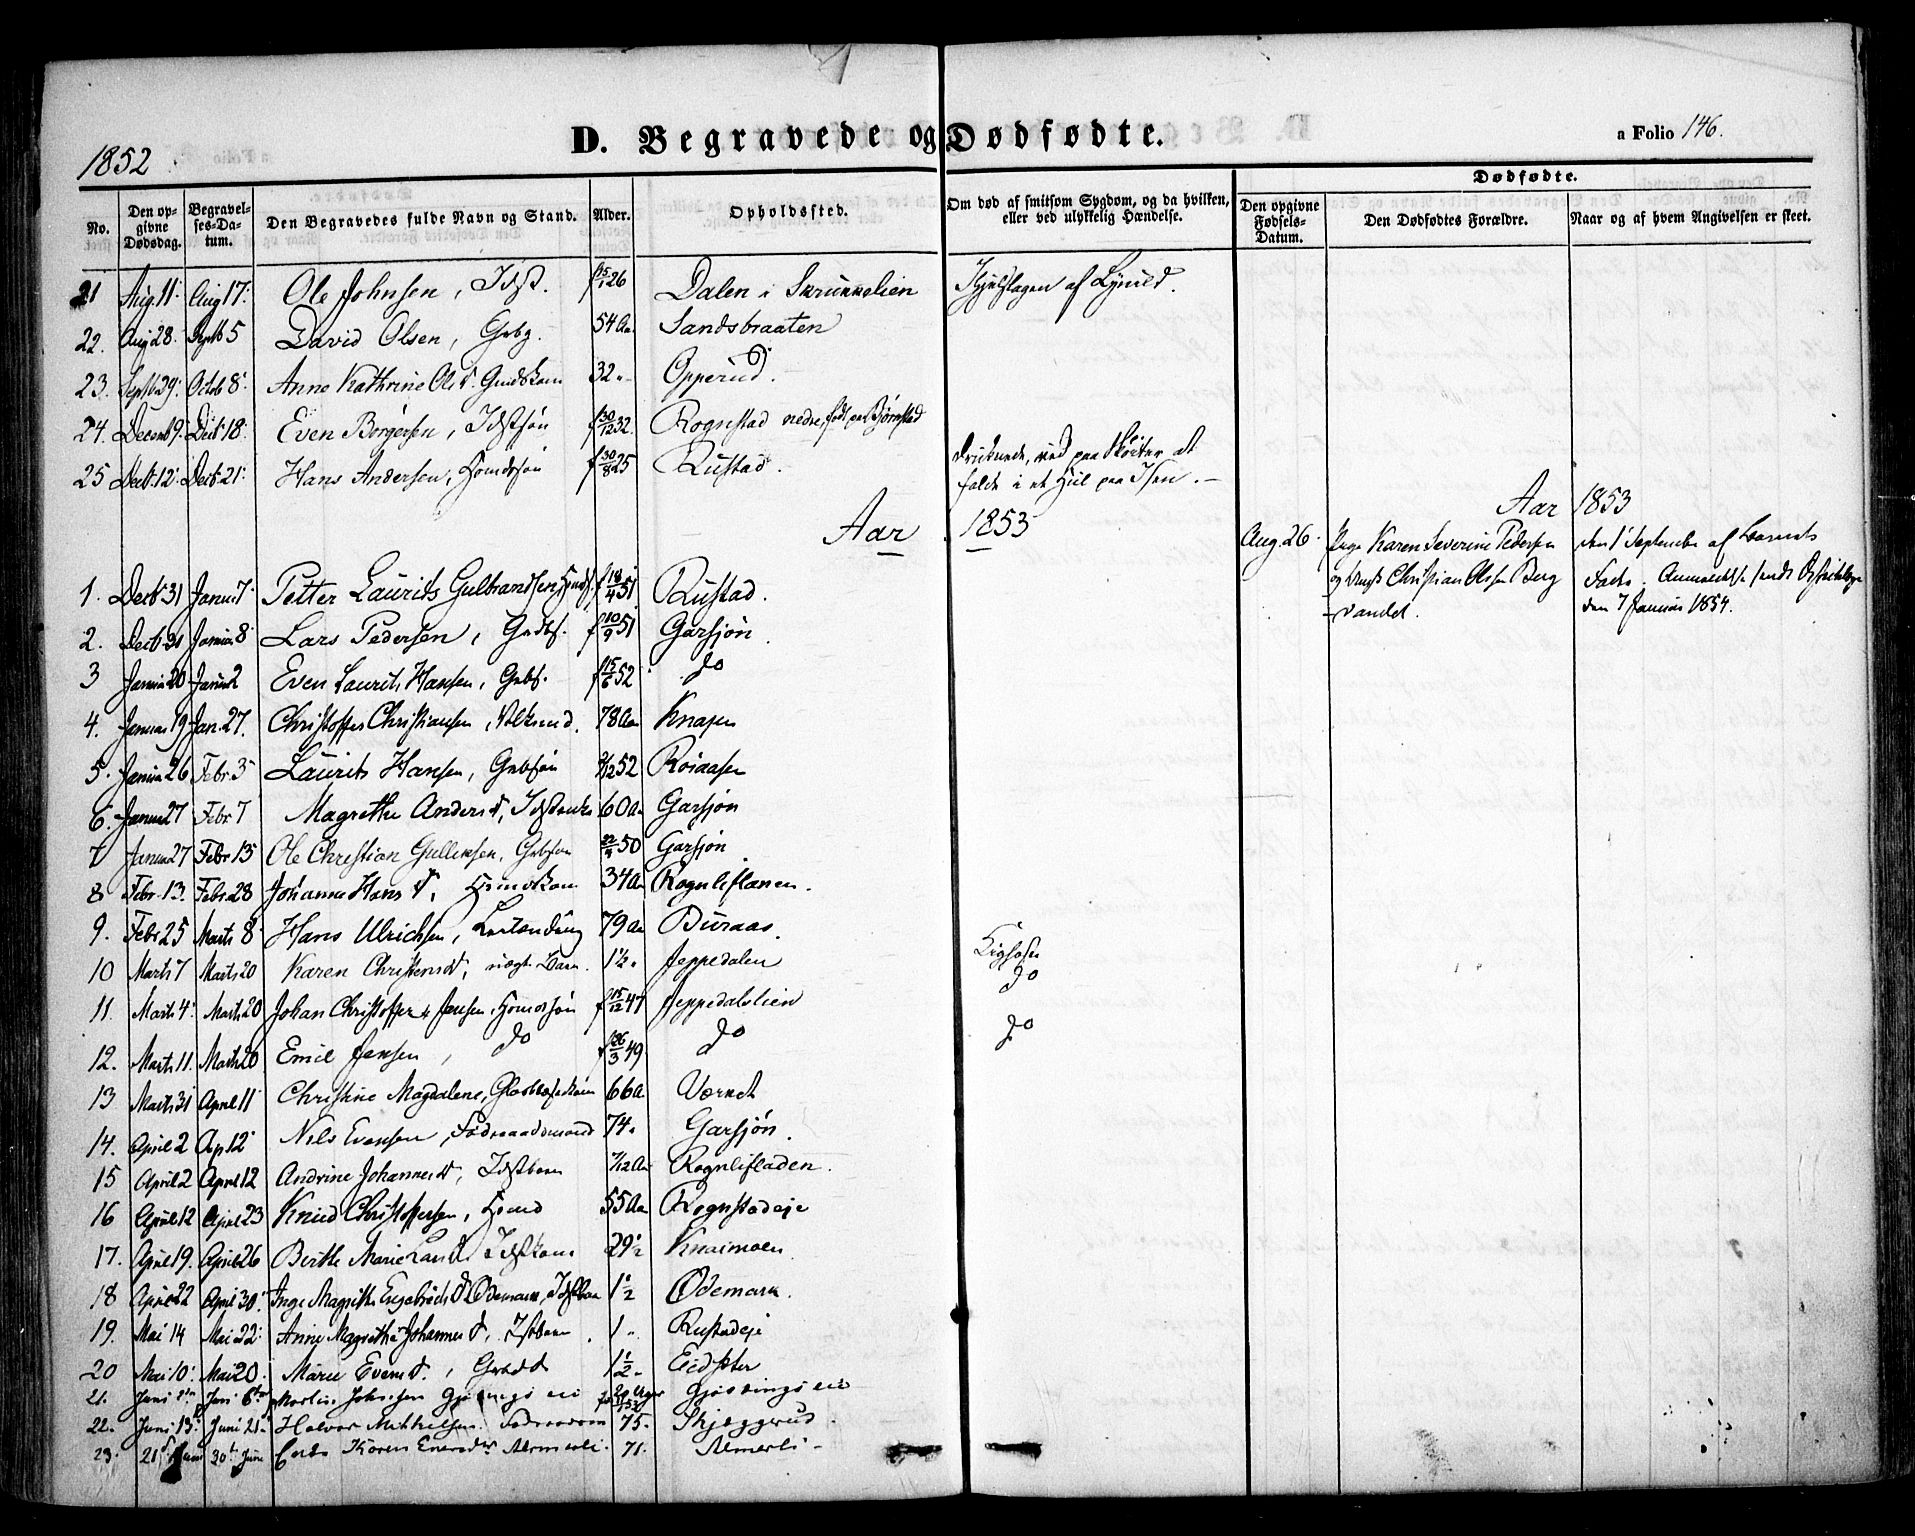 D. Begravede og Dødfødte.
a Folio 146.
1852
No. Den opgivne Dødsdag. Begravelses-Datum. Den Begravedes fulde Navn og Stand. Alder. Opholdssted. Om død af smitsom Sygdom, og da hvilken, eller ved ulykkelig Hændelse. Dødfødte. Den opgivne Fødsels-Datum. Den Dødfødtes Forældre. Naar og af hvem Angivelsen er skeet.
21 Aug. 11. Aug 17. Ole Johnsen, Idst. f 15/1 26 Dalen i Skrukkelien Ihjelslagen af Lynild.
22. Aug 28. Septb 5 David Olsen, Grbg. 54 Aa Sandsbraaten
23. Septb 29. Octob 8. Anne Kathrine Ols D. Gmdskone 32 " Opperud.
24. Decemb 9. Decb. 18. Even Børgersen, Idstsøn f 30/12 32. Rognstad nedre, født paa Bjørnstad
25 Decb. 12. Decb. 21. Hans Andersen, Hsmdssøn f 30/8 25 Rustad. Druknede, ved paa Skøiter at falde i et Hul paa Isen.
Aar 1853
Aar 1853
Aug. 26. Pige Karen Severine Pedersen og Ungk Christian Olsen Berg vandet. den 1 September af Barnets Fader. Anmeldelse sendt
den 7 Januar 1854.
1. Decb 31 Januar 7. Petter Laurits Gulbrandsen, Hsmds. f 18/4 51 Rustad.
2. Decb. 31 Januar 8. Lars Pedersen, Grdbs. f 10/9 51 Garsjøn.
3 Januar 20 Januar 2 Even Laurits Hansen, Grbs. f 15/6 52 do
4. Januar 19 Jan. 27. Christoffer Christiansen, 78 Aa Knaien
5. Januar 26 Febr. 3 Laurits Hansen, Grbsøn 9/12 52 Røiaasen
6. Januar 27 Febr 7 Magrethe Anders D, Idstenke 60 Aa Garsjøn
7 Januar 27 Febr. 13 Ole Christian Gulliksen, Grbsøn 22/9 50 Garsjøn
8 Febr. 13. Febr. 28 Johanne Hans D, Hsmdskone 34 Aa Rognlifladen.
9. Febr 25 Marts 8 Hans Ulrichsen, 79 Aa Buraas.
10 Marts 7 Marts 20 Karen Christens D, uægte Barn. 1 1/2 " Jeppedalen Kighoste
11. Marts 4. Marts 20 Johan Christoffer Jensen, Hsmdssøn f 15/12 47 Jeppedalslien do
12. Marts 11. Marts 20 Emil Jensen, do f 26/3 49 do do
13 Marts 31 April 11 Christine Magdalene, Glasblæserkone 66 a Værket
14. April 2 Ap 12 Nils Evensen, Føderaadsmand 74 " Garsjøn.
15 April 2 April 12 Andrine Johannes D, Idstbarn 7/12 Aa Rognlifladen.
16 April 12 April 23 Knud Christoffersen, Hsmd 55 Aa Rognstadeje
17. April 19. April 26 Berthe Marie Lars D. Idstkone 29 1/2 Knaimoen
18 April 22 April 30. Inge Magrethe Engebrets D. Ødemark, Idstbarn 1 1/2 Ødemark.
19. Mai 14 Mai 22. Anne Magrethe Johannes D, Idstbarn. 1 ". Rustadeje
20 Mai 10. Mai 20. Marie Evens D., Grdb D 1 1/2 " Eidsæter
21. Juni 1ste Juni 6te Martin Johnsen Gjødings eie 20 Uger Gjødings eie
22. Juni 13. Juni 21. Halvor Mikkelsen. Føderaadsm 75. Skjæggerud.
23. 21 Juni 30te Juni Enke Karen Evensdr Almerli. 71. Almerli